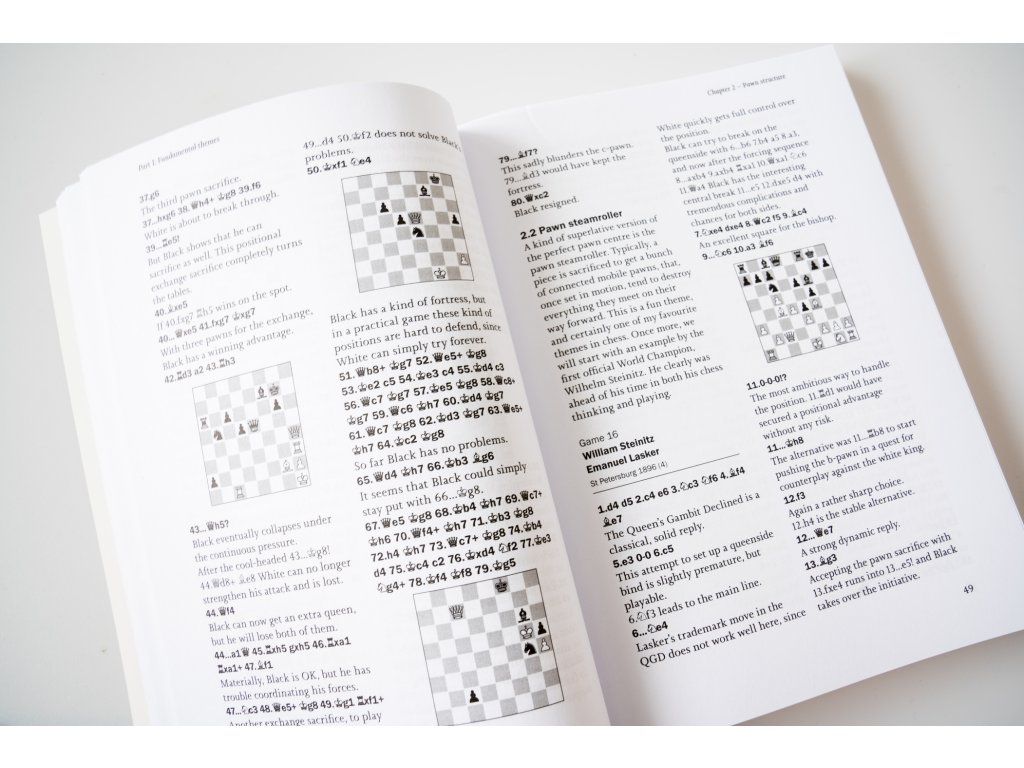 Part 1: Fundamental themes
37.g6
The third pawn sacrifice.
37...hxg6 38.♕h4+ ♔g8 39.f6
White is about to break through.
39...♖e5!
But Black shows that he can
sacrifice as well. This positional
exchange sacrifice completely turns
the tables.
40.♗xe5
If 40.fxg7 ♖h5 wins on the spot.
40...♕xe5 41.fxg7 ♔xg7
With three pawns for the exchange,
Black has a winning advantage.
42.♖d3 a2 43.♖h3
43...♕h5?
Black eventually collapses under
the continuous pressure.
After the cool-headed 43...♔g8!
44.♕d8+ ♗e8 White can no longer
strengthen his attack and is lost.
44.♕f4
Black can now get an extra queen,
but he will lose both of them.
44...a1♕ 45.♖xh5 gxh5 46.♖xa1
♖xa1+ 47.♗f1
Materially, Black is OK, but he has
trouble coordinating his forces.
47...♘c3 48.♕e5+ ♔g8 49.♔g1 ♖xf1+
Another exchange sacrifice, to play
49...d4 50.♔f2 does not solve Black's
problems.
50.♔xf1 ♘e4
Black has a kind of fortress, but
in a practical game these kind of
positions are hard to defend, since
White can simply try forever.
51.♕b8+ ♔g7 52.♕e5+ ♔g8
53.♔e2 c5 54.♔e3 c4 55.♔d4 c3
56.♕c7 ♔g7 57.♕e5 ♔g8 58.♕c8+
♔g7 59.♕c6 ♔h7 60.♔d4 ♔g7
61.♕c7 ♔g8 62.♔d3 ♔g7 63.♕e5+
♔h7 64.♔c2 ♔g8
So far Black has no problems.
65.♕d4 ♔h7 66.♔b3 ♗g6
It seems that Black could simply
stay put with 66...♔g8.
67.♕e5 ♔g8 68.♔b4 ♔h7 69.♕c7+
♔h6 70.♕f4+ ♔h7 71.♔b3 ♔g8
72.h4 ♔h7 73.♕c7+ ♔g8 74.♔b4
d4 75.♔c4 c2 76.♔xd4 ♘f2 77.♔e3
♘g4+ 78.♔f4 ♔f8 79.♔g5
Chapter 2 – Pawn structure
79...♗f7?
This sadly blunders the c-pawn.
79...♗d3 would have kept the
fortress.
80.♕xc2
Black resigned.
2.2 Pawn steamroller
A kind of superlative version of
the perfect pawn centre is the
pawn steamroller. Typically, a
piece is sacrificed to get a bunch
of connected mobile pawns, that,
once set in motion, tend to destroy
everything they meet on their
way forward. This is a fun theme,
and certainly one of my favourite
themes in chess. Once more, we
will start with an example by the
first official World Champion,
Wilhelm Steinitz. He clearly was
ahead of his time in both his chess
thinking and playing.
Game 16
William Steinitz
Emanuel Lasker
St Petersburg 1896 (4)
1.d4 d5 2.c4 e6 3.♘c3 ♘f6 4.♗f4
♗e7
The Queen's Gambit Declined is a
classical, solid reply.
5.e3 0-0 6.c5
This attempt to set up a queenside
bind is slightly premature, but
playable.
6.♘f3 leads to the main line.
6...♘e4
Lasker's trademark move in the
QGD does not work well here, since
White quickly gets full control over
the position.
Black can try to break on the
queenside with 6...b6 7.b4 a5 8.a3,
and now after the forcing sequence
8...axb4 9.axb4 ♖xa1 10.♕xa1 ♘c6
11.♕a4 Black has the interesting
central break 11...e5 12.dxe5 d4 with
tremendous complications and
chances for both sides.
7.♘xe4 dxe4 8.♕c2 f5 9.♗c4
An excellent square for the bishop.
9...♘c6 10.a3 ♗f6
11.0-0-0!?
The most ambitious way to handle
the position. 11.♖d1 would have
secured a positional advantage
without any risk.
11...♔h8
The alternative was 11...♖b8 to start
pushing the b-pawn in a quest for
counterplay against the white king.
12.f3
Again a rather sharp choice.
12.h4 is the stable alternative.
12...♕e7
A strong dynamic reply.
13.♗g3
Accepting the pawn sacrifice with
13.fxe4 runs into 13...e5! and Black
takes over the initiative.
49